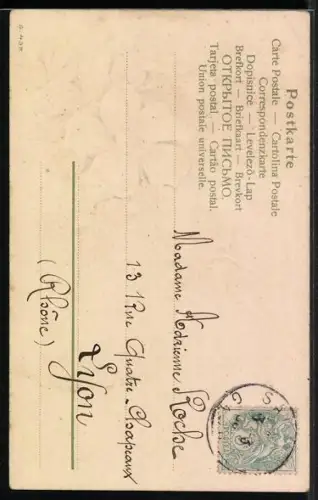 Postkarte
Carte Postale — Cartolina Postale
Correspondenzkarte
Dopisnice — Levelező-Lap
Brefkort — Briefkaart — Brevkort
ОТКРЫТОЕ ПИСЬМО
Tarjeta postal. — Cartão postal.
Union postale universelle.
Madame Adrienne Roche
13 Rue Quatre-Chapeaux
Lyon
(Rhône)